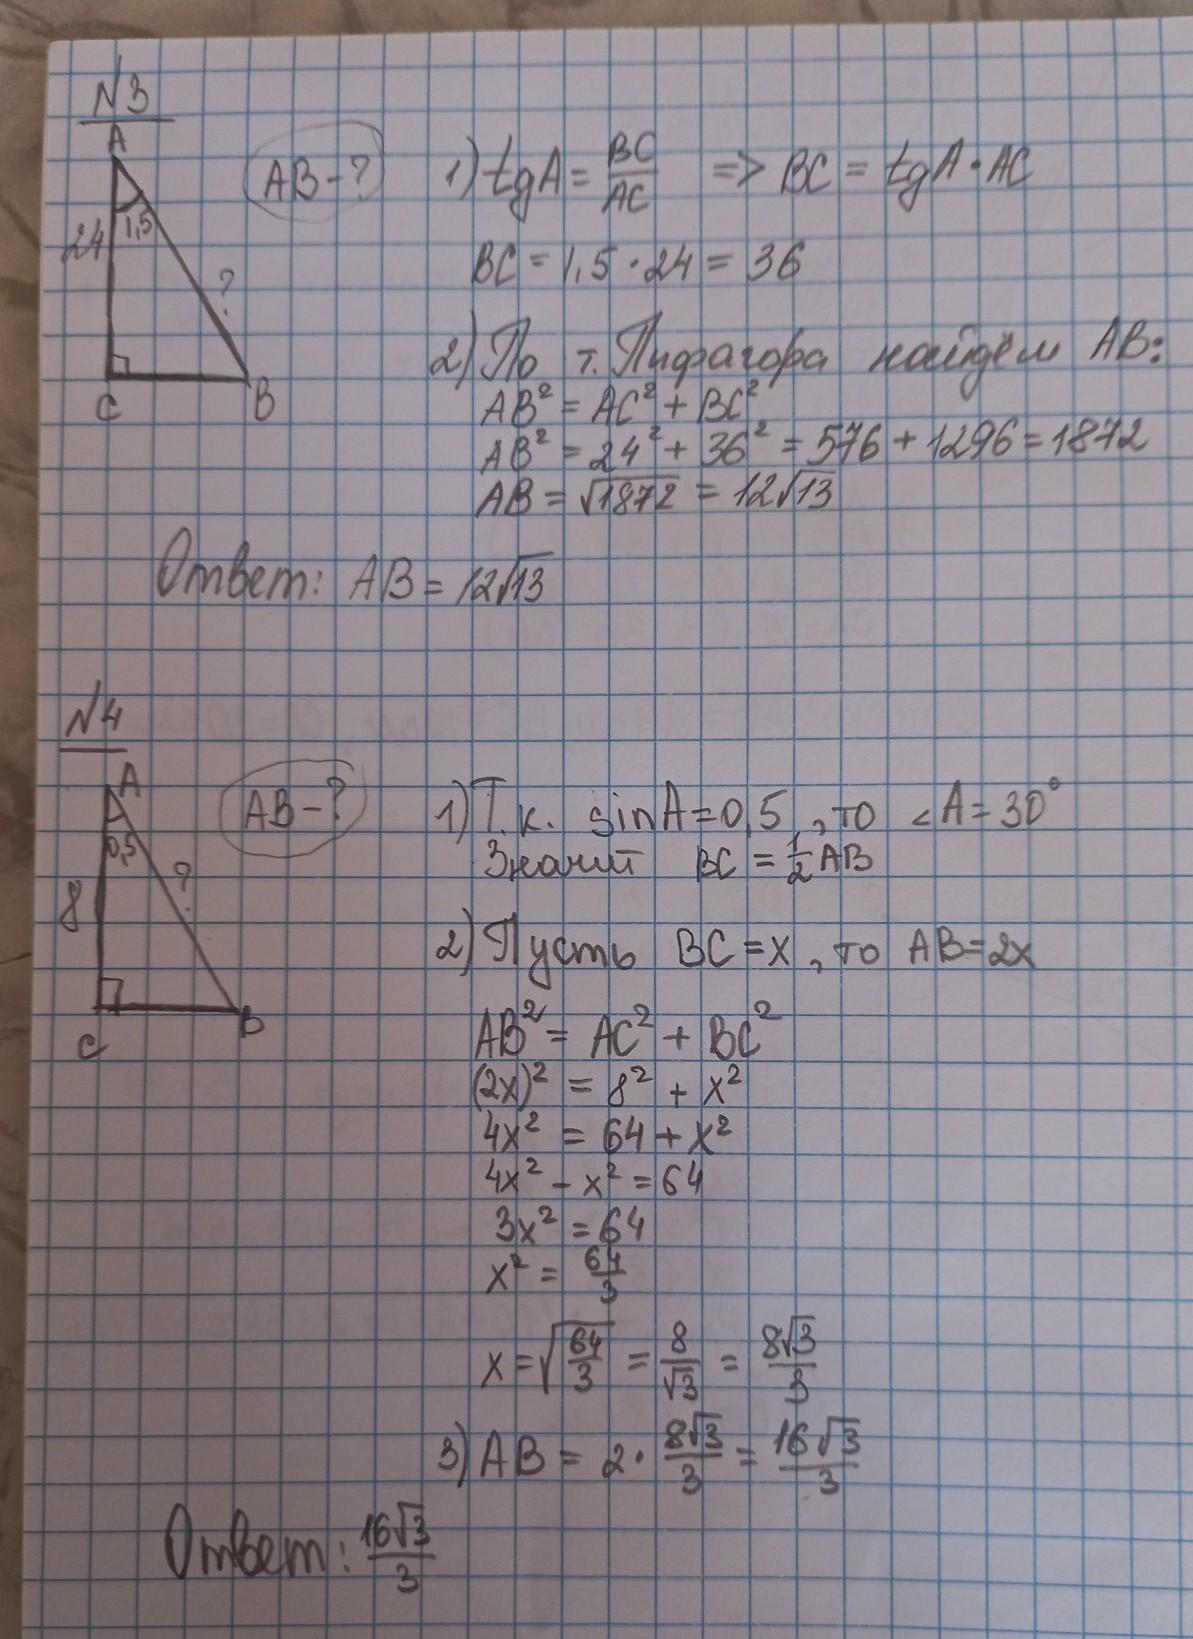 N3
A
AB - ?
1) tgA = BC/AC => BC = tgA · AC
24
1,5
BC = 1,5 · 24 = 36
?
2) По т. Пифагора найдём AB:
C
B
AB² = AC² + BC²
AB² = 24² + 36² = 576 + 1296 = 1872
AB = √1872 = 12√13
Ответ: AB = 12√13
N4
A
AB - ?
1) Т.к. sinA = 0,5, то ∠A = 30°
0,5
Значит BC = 1/2 AB
8
?
2) Пусть BC = x, то AB = 2x
C
B
AB² = AC² + BC²
(2x)² = 8² + x²
4x² = 64 + x²
4x² - x² = 64
3x² = 64
x² = 64/3
x = √(64/3) = 8/√3 = 8√3/3
3) AB = 2 · 8√3/3 = 16√3/3
Ответ: 16√3/3